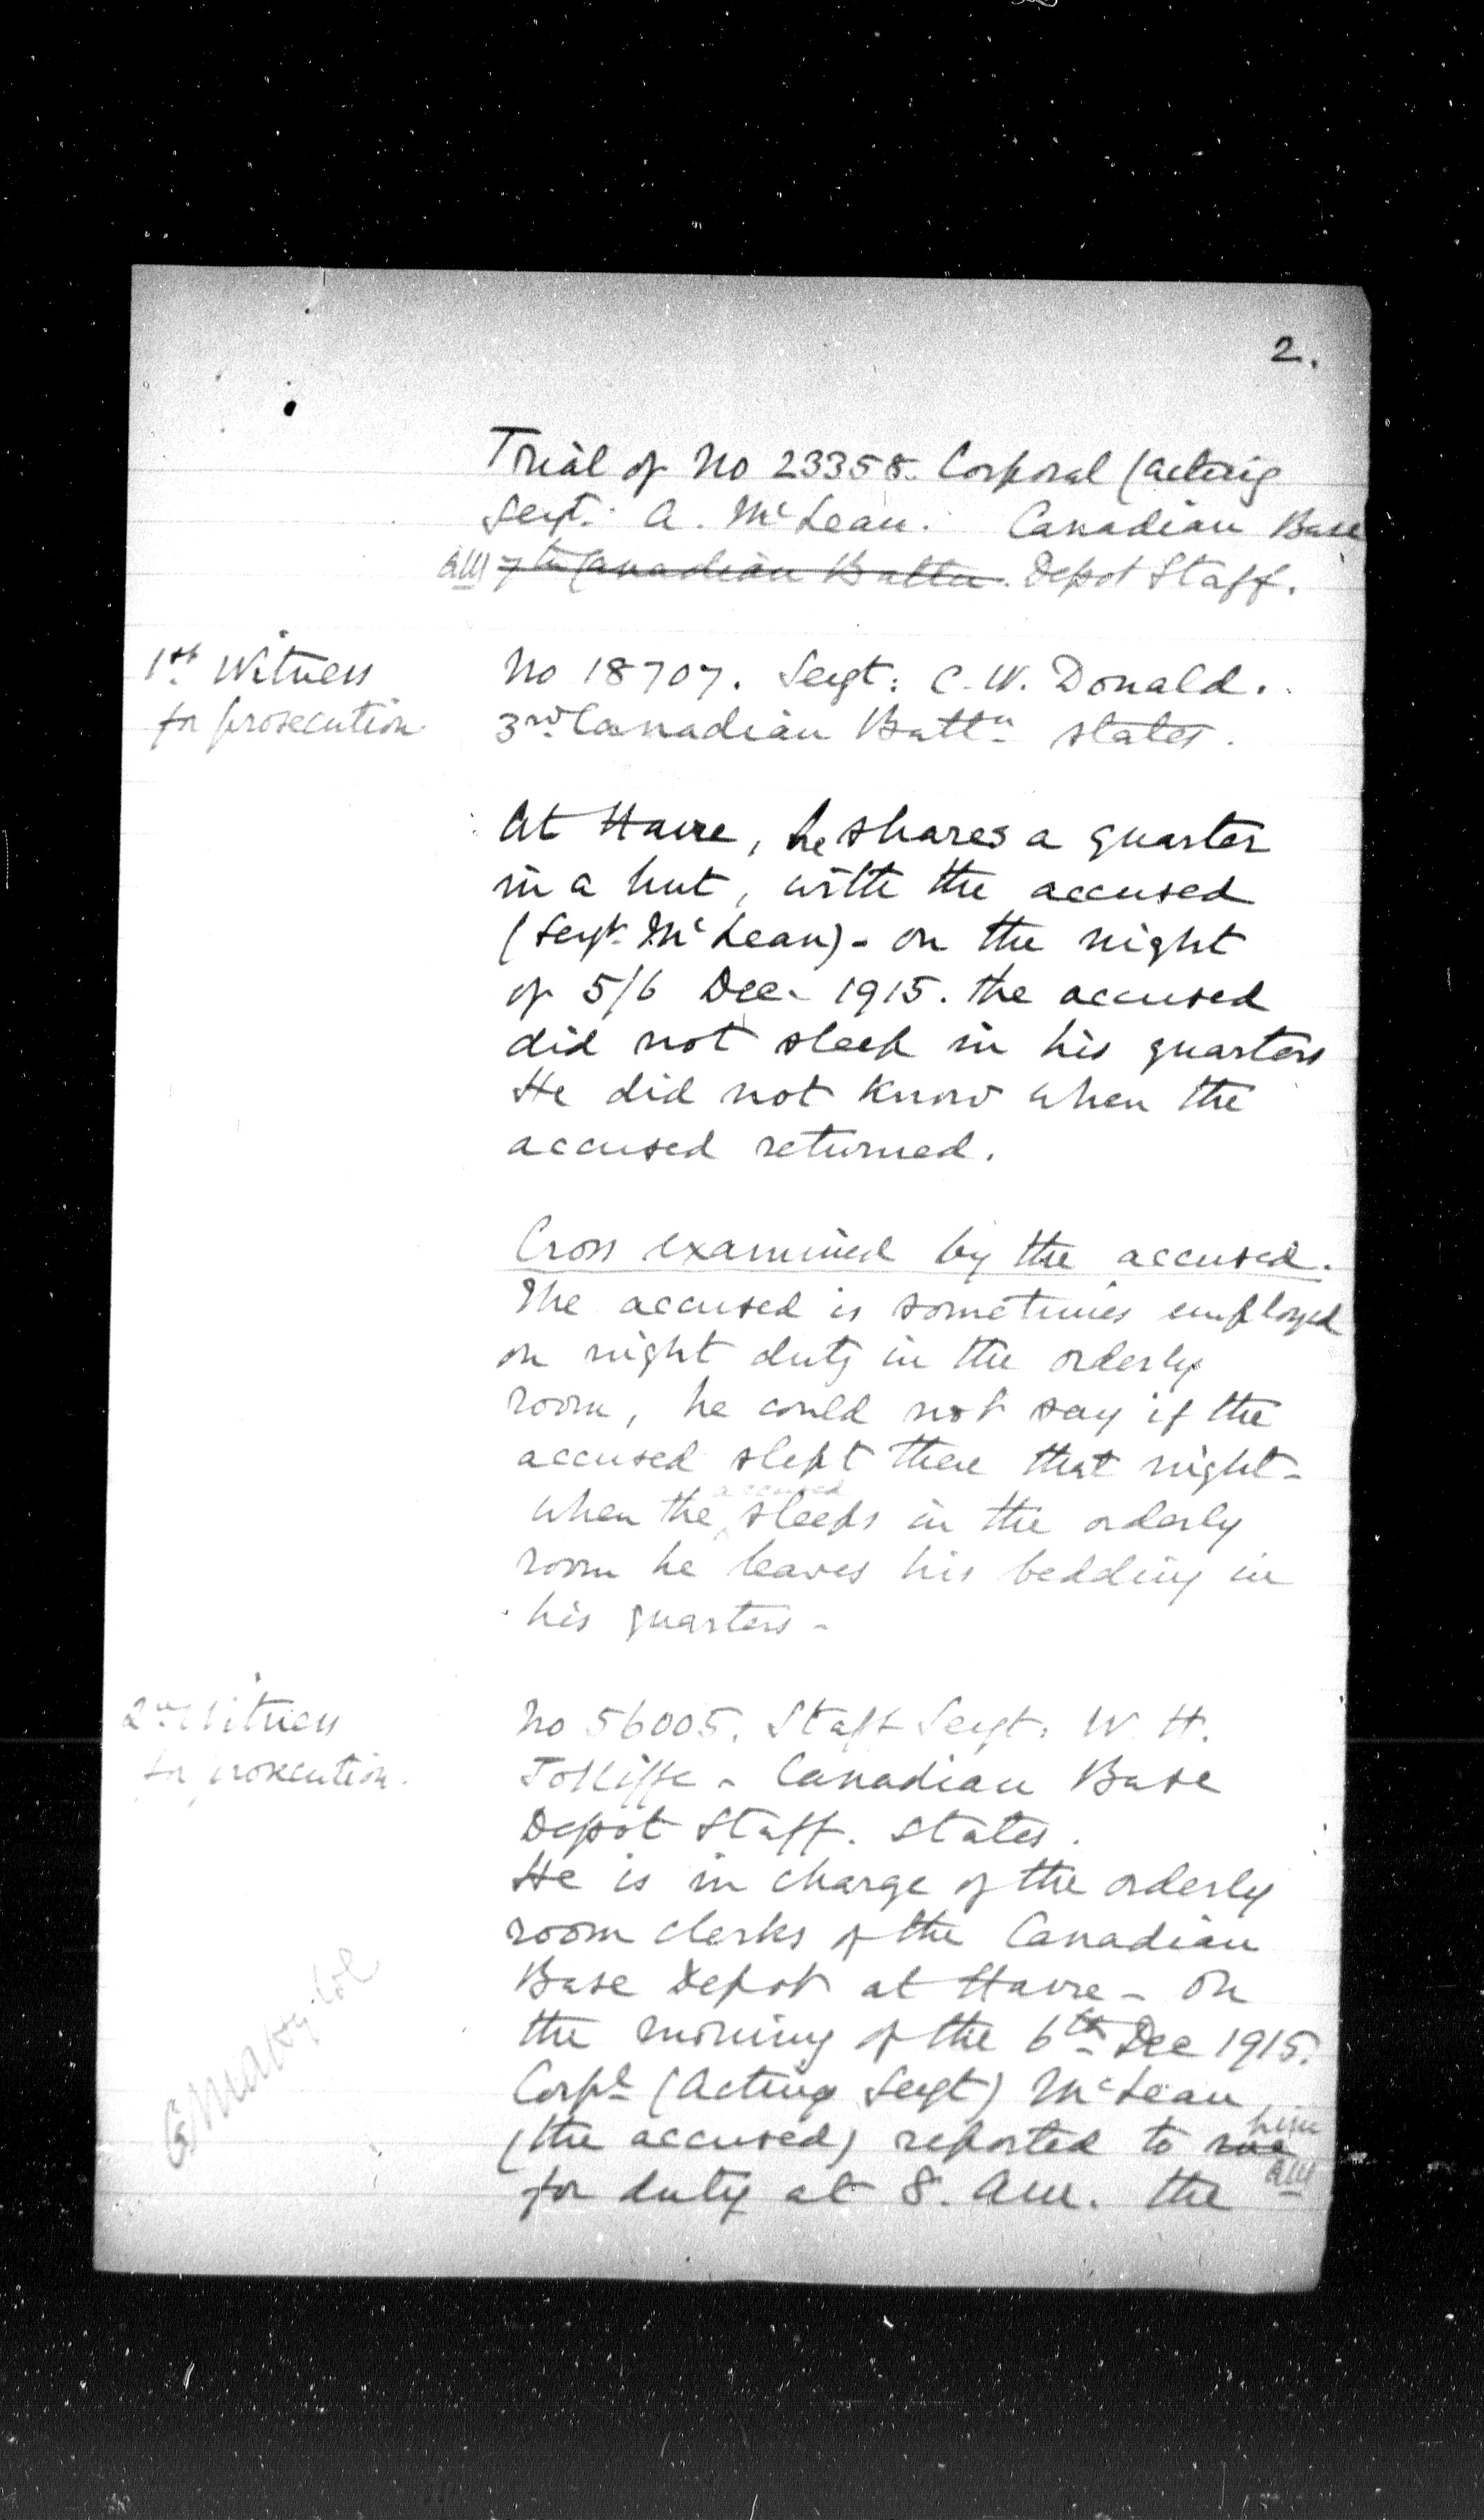 2.
Trial of No 23358. Corporal (acting
Sergt. A. McLean. Canadian Base
7th Canadian Battn. Depot Staff.
1st Witness
for prosecution.
No 18707. Sergt: C. W. Donald.
3rd Canadian Battn states.
At Havre, he shares a quarter
in a hut, with the accused
(Sergt McLean) - on the night
of 5/6 Dec- 1915. the accused
did not sleep in his quarters
He did not know when the
accused returned.
Cross examined by the accused.
The accused is sometimes employed
on night duty in the orderly
room, he could not say if the
accused slept there that night -
accused
when the sleeps in the orderly
room he leaves his bedding in
his quarters -
2nd Witness
for prosecution.
No 56005. Staff Sergt. W. H.
Canadian Base
Depot Staff. States.
He is in charge of the orderly
room clerks of the Canadian
Base Depot at Havre - On
the morning of the 6th Dec 1915.
Corpl (Acting Sergt) McLean
him
(the accused) reported to me
for duty at 8. am. the